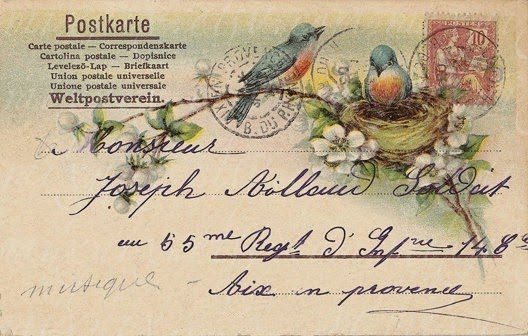 Postkarte
Carte postale — Correspondenzkarte
Cartolina postale — Dopisnice
Levelező-Lap — Briefkaart
Union postale universelle
Unione postale universale
Weltpostverein.
10
B. DU RH
Monsieur
Joseph Soldat
au 55me Regt d'Infrie 148
Aix en provence
musique